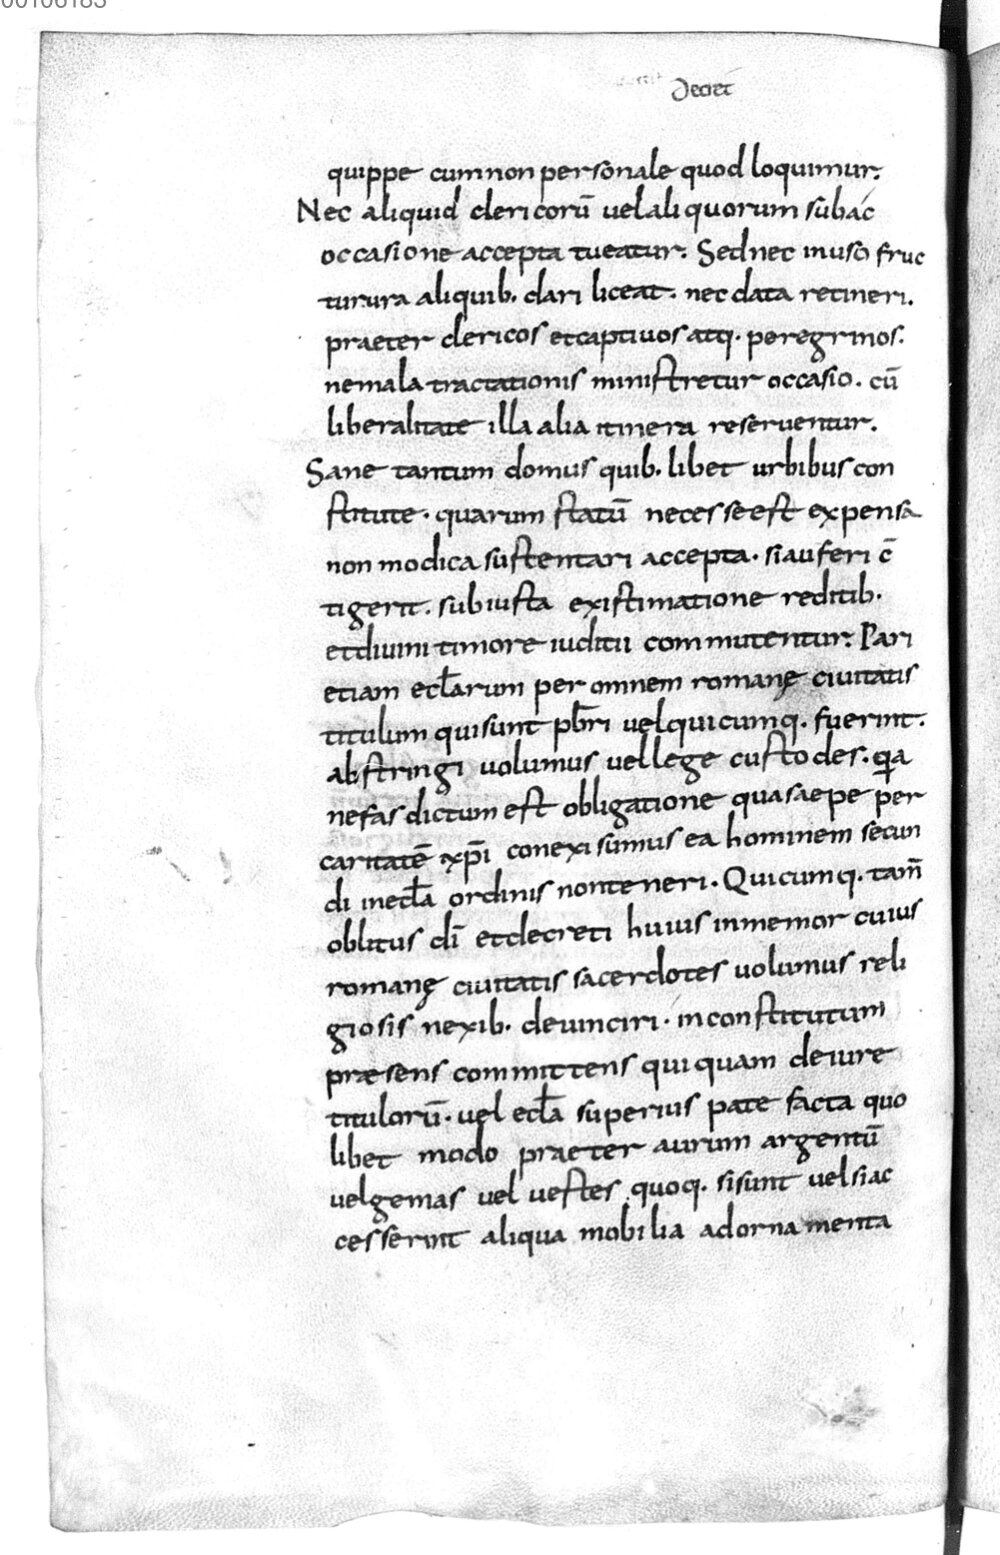 00106183
Decret
quippe cum non personale quod loquimur.
Nec aliquid clericorū uel ali quorum sub ac
occasione accepta tueatur. Sed nec in usū fruc
turura aliquib. dari liceat. nec data retineri.
praeter clericos et captiuos atq. peregrinos.
ne mala tractationis ministretur occasio. cū
liberalitate illa alia itinera reseruentur.
Sane tantum domus quib. libet urbibus con
stitute. quarum statū necesse est expensa
non modica sustentari accepta. si auferi c̄
tigerit. sub iusta existimatione reditib.
et diuini timore iuditii commutentur. Pari
etiam ecl̄arum per omnem romanę ciuitatis
titulum qui sunt pb̄ri uel quicumq. fuerint.
abstringi uolumus uel lege custodes. qa
nefas dictum est obligatione qua saepe per
caritatē xp̄i conexi sumus ea hominem secun
di in ecl̄a ordinis non teneri. Quicumq. tam̄
oblitus dī et decreti huius inmemor cuius
romanę ciuitatis sacerdotes uolumus reli
giosis nexib. deuinciri. in constitutum
præsens committens quiquam de iure
titulorū. uel ecl̄a superius pate facta quo
libet modo praeter aurum argentū
uel gemas uel uestes quoq. si sunt uel si ac
cesserint aliqua mobilia adornamenta